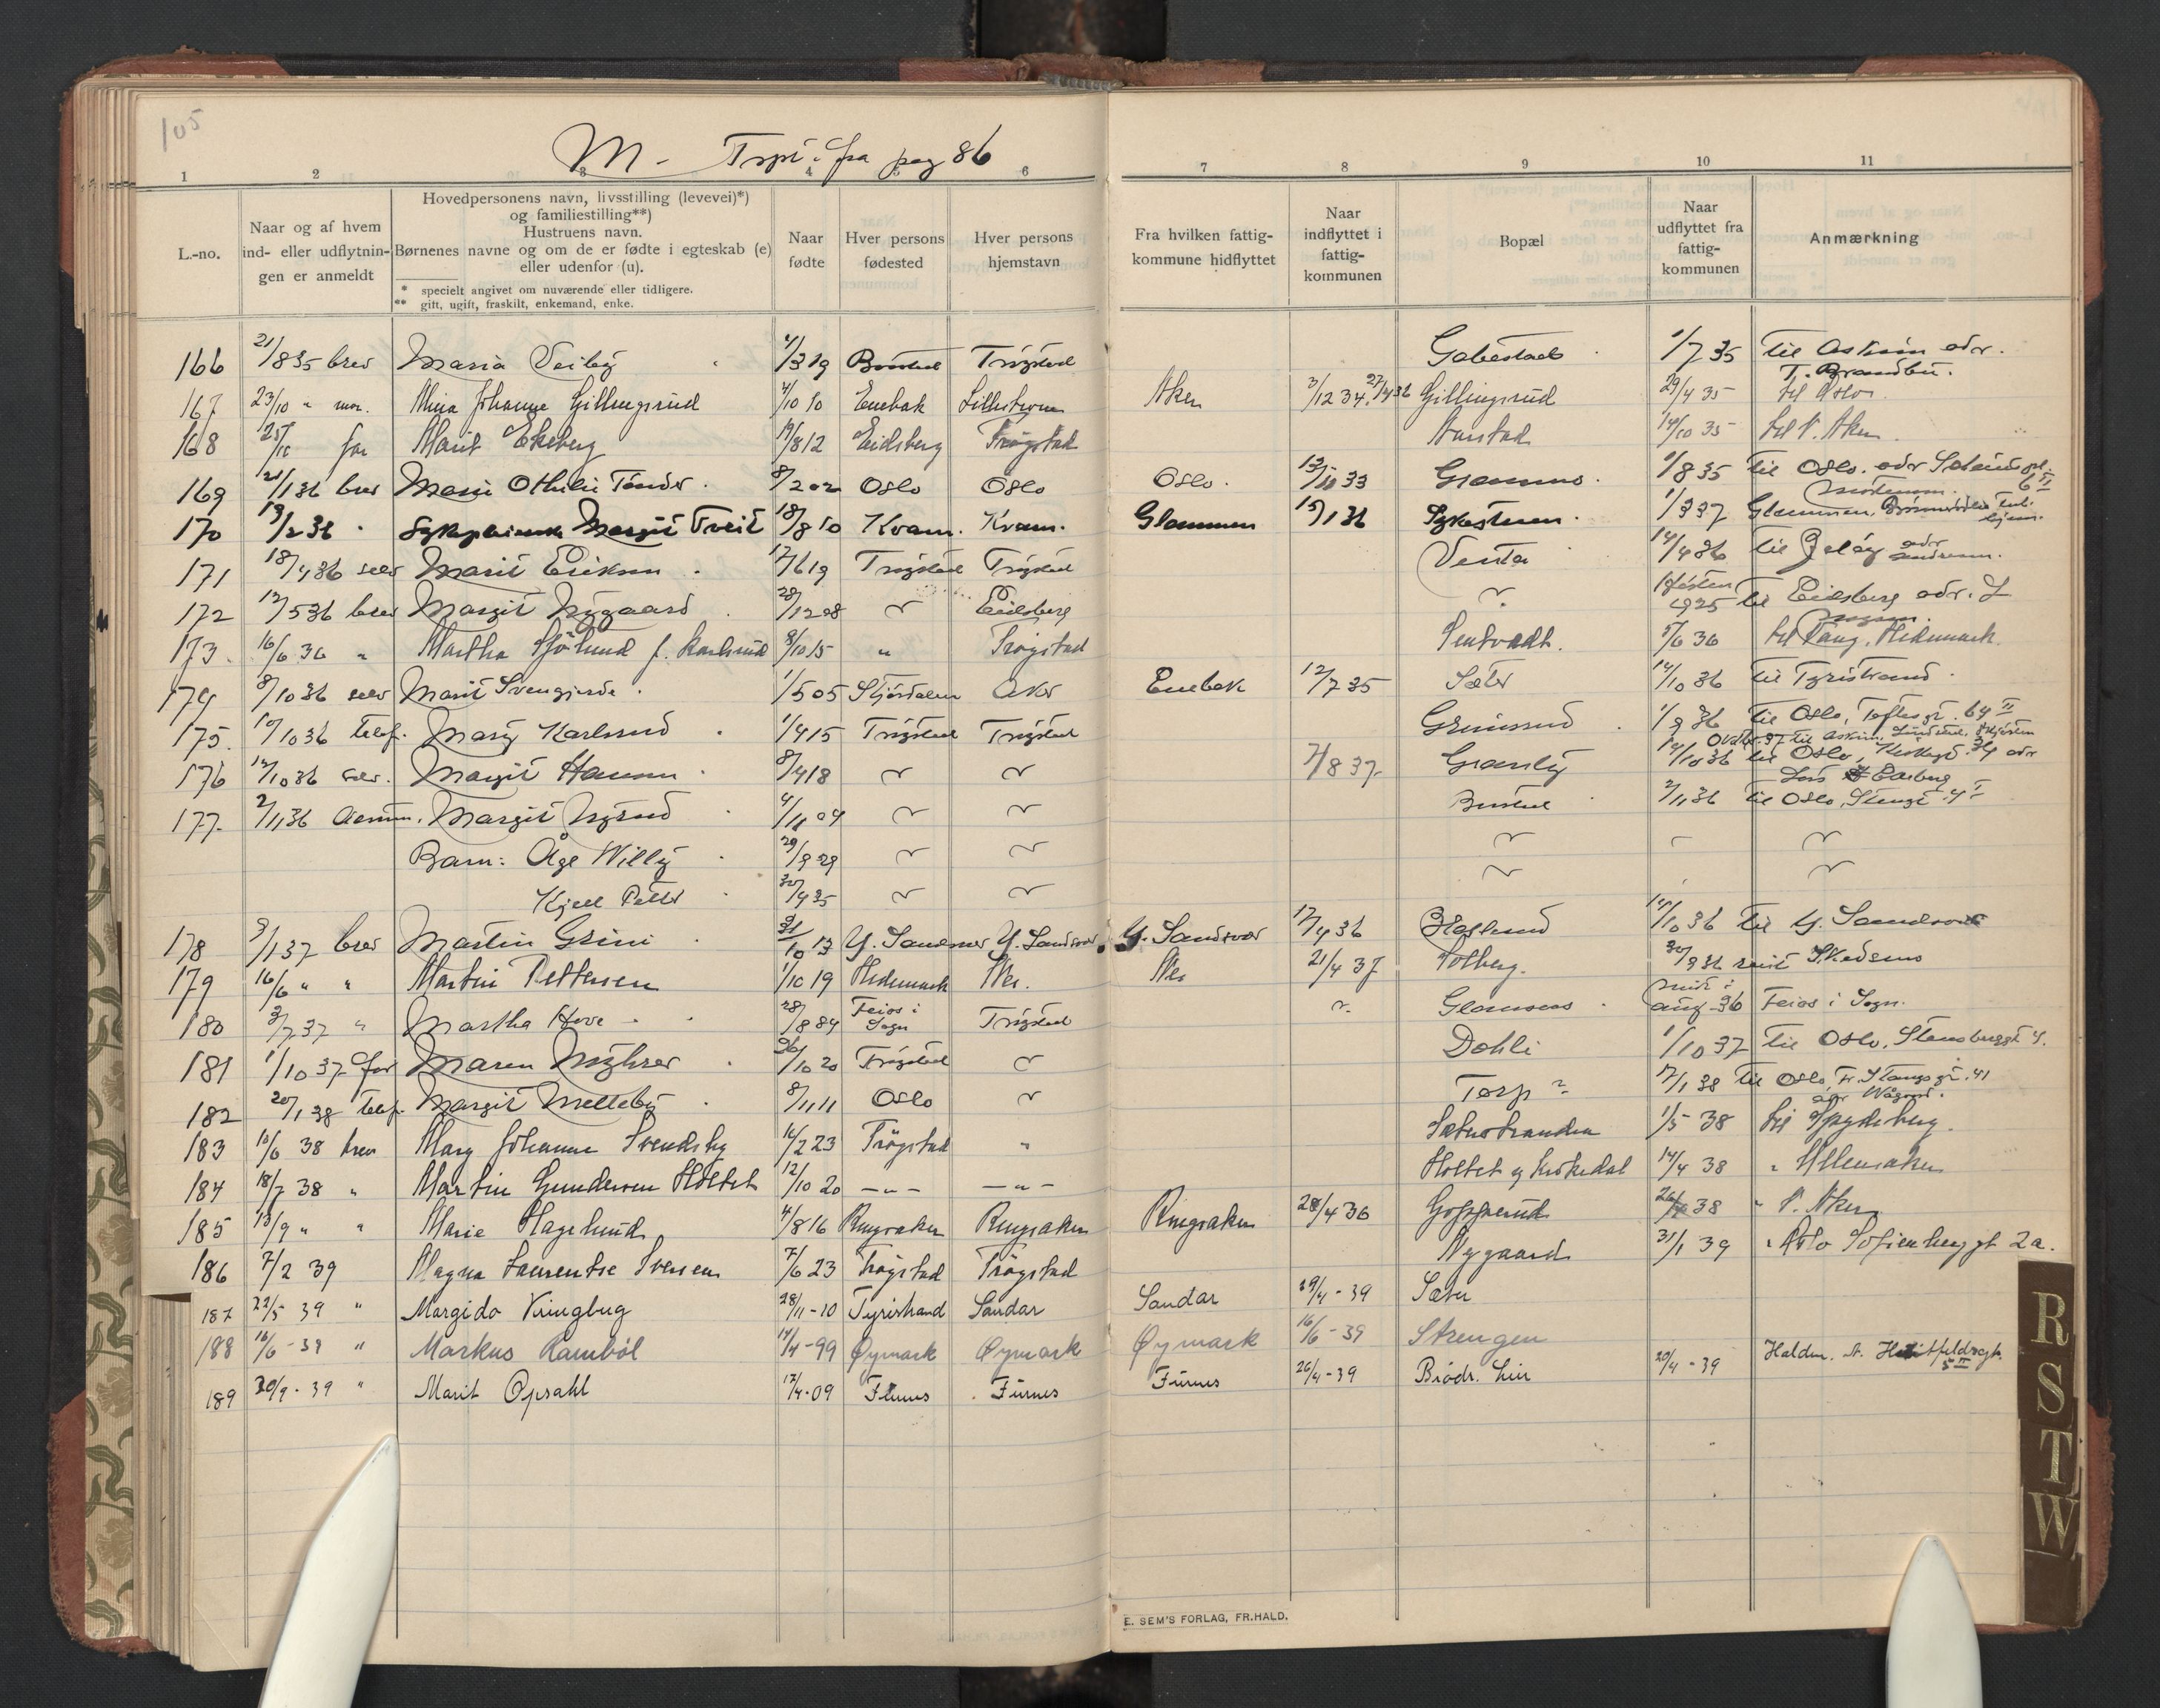 105
M - Trpt. fra pag 86
1 2 3 4 5 6 7 8 9 10 11
L.-no.
Naar og af hvem ind- eller udflytnin- gen er anmeldt
Hovedpersonens navn, livsstilling (levevei)*)
og familiestilling**)
Hustruens navn.
Børnenes navne og om de er fødte i egteskab (e)
eller udenfor (u).
* specielt angivet om nuværende eller tidligere.
** gift, ugift, fraskilt, enkemand, enke.
Naar fødte
Hver persons fødested
Hver persons hjemstavn
Fra hvilken fattig- kommune hidflyttet
Naar indflyttet i fattig- kommunen
Bopæl
Naar udflyttet fra fattig- kommunen
Anmærkning
166 21/8 35 brev Maria Veiby 4/3 19 Båstad Trøgstad 1/7 35 til Askim adr.
T. Brandbu.
167 23/10 " mor. Mina Johanne Gillingsrud 4/10 10 Enebak Lillestrøm Aker 3/12 34. 27/4 36 Gillingsrud 29/4 35 til Oslo
168 25/11 far Marit Ekeberg 19/8 12 Eidsberg Trøgstad 14/10 35 til V. Aker
169 21/1 36 brev Othilie Tønder 8/2 02 Oslo Oslo Oslo. 13/11 33 1/8 35 til Oslo. adr
170 13/2 36 Margit Tveit 18/8 10 Kvam. Kvam. Glemmen 15/1 36 Sykestuen. 1/3 37 Glemmen,
171 18/4 36 selv Marit Eriksen 17/6 19 Trøgstad Trøgstad Venta 14/4 36 til Jeløy adr
Andresen.
172 12/5 36 brev Margit Nygaard 28/12 08 " Eidsberg " Høsten 1925 til Eidsberg adr.
173. 16/6 36 " Martha Sjølund f. Karlsrud 8/10 15 " Trøgstad 5/6 36 til Vang, Hedemark.
174 8/10 36 selv Marit Svengjerde 1/5 05 Stjørdalen Aker Enebak 12/7 35 Sæter 14/10 36 til Tyristrand
175. 10/10 36 telef. Mary Karlsrud 1/4 15 Trøgstad Trøgstad Grimsrud 1/9 36 til Oslo, Toftesgt. 64 II
176 12/10 36 selv. Margit Hansen 8/4 18 " " 7/8 37 Granly 14/10 36 til Oslo,
177. 2/11 36 Margit Nysrud 4/11 04 " " Båstad 2/11 36 til Oslo, Stengt. 4 I
Barn: Åge Willy 29/9 29 " " " " "
Kjell Petter 30/4 35 " " " "
178 3/1 37 brev Martin Grini 31/10 13 Y. Sandsvær Y. Sandsvær Y. Sandsvær 17/4 36 14/10 36 til Y. Sandsvær
179 16/6 " " Martin Pettersen 1/10 19 Hedemark Nes. Nes 21/4 37 Solberg. 30/9 36 reist Skedsmo
180 3/7 37 " Martha Hove 28/8 84 Feios i Sogn Trøgstad " midt i aug. 36 Feios i Sogn.
181 1/10 37 far Maren Myhrer 26/10 20 Trøgstad " Dahli 1/10 37 til Oslo, Stensberggt 4.
182 20/1 38 telef. Margit Melleby 8/11 11 Oslo " Torp ? 17/1 38 til Oslo, Fr. Stangsgt. 41
183 10/6 38 brev Mary Johanne Svendsby 16/2 23 Trøgstad " Sæterstranden 1/5 38 til Spydeberg.
184 18/7 38 " Martin Gundersen Holtet 12/10 20 — " — — " — Holtet og Krokedal 14/4 38 " Ullensaker
185 13/9 " " Marie Hagelund 4/8 16 Ringsaker Ringsaker Ringsaker 28/4 36 Gopperud 38 " V. Aker
186 7/2 39 Magna Laurentse Svensen 7/6 23 Trøgstad Trøgstad Nygaard 31/1 39 " Oslo Sofienberggt 2a.
187 22/5 39 " Margido Kringbug 28/11 - 10 Tyristrand Sandar Sandar 29/4 - 39 Sæter
188 16/6 - 39 " Markus Rambøl 14/4 - 99 Øymark Øymark Øymark 16/6 - 39 Strengen
189 20/9 - 39 " Marit Opsahl 17/4 - 09 Furnes Furnes Furnes 26/4 - 39 Brødr. Lier 20/4 - 39 Halden.
5 II
E. SEM'S FORLAG, FR.HALD.
R
S
T
W